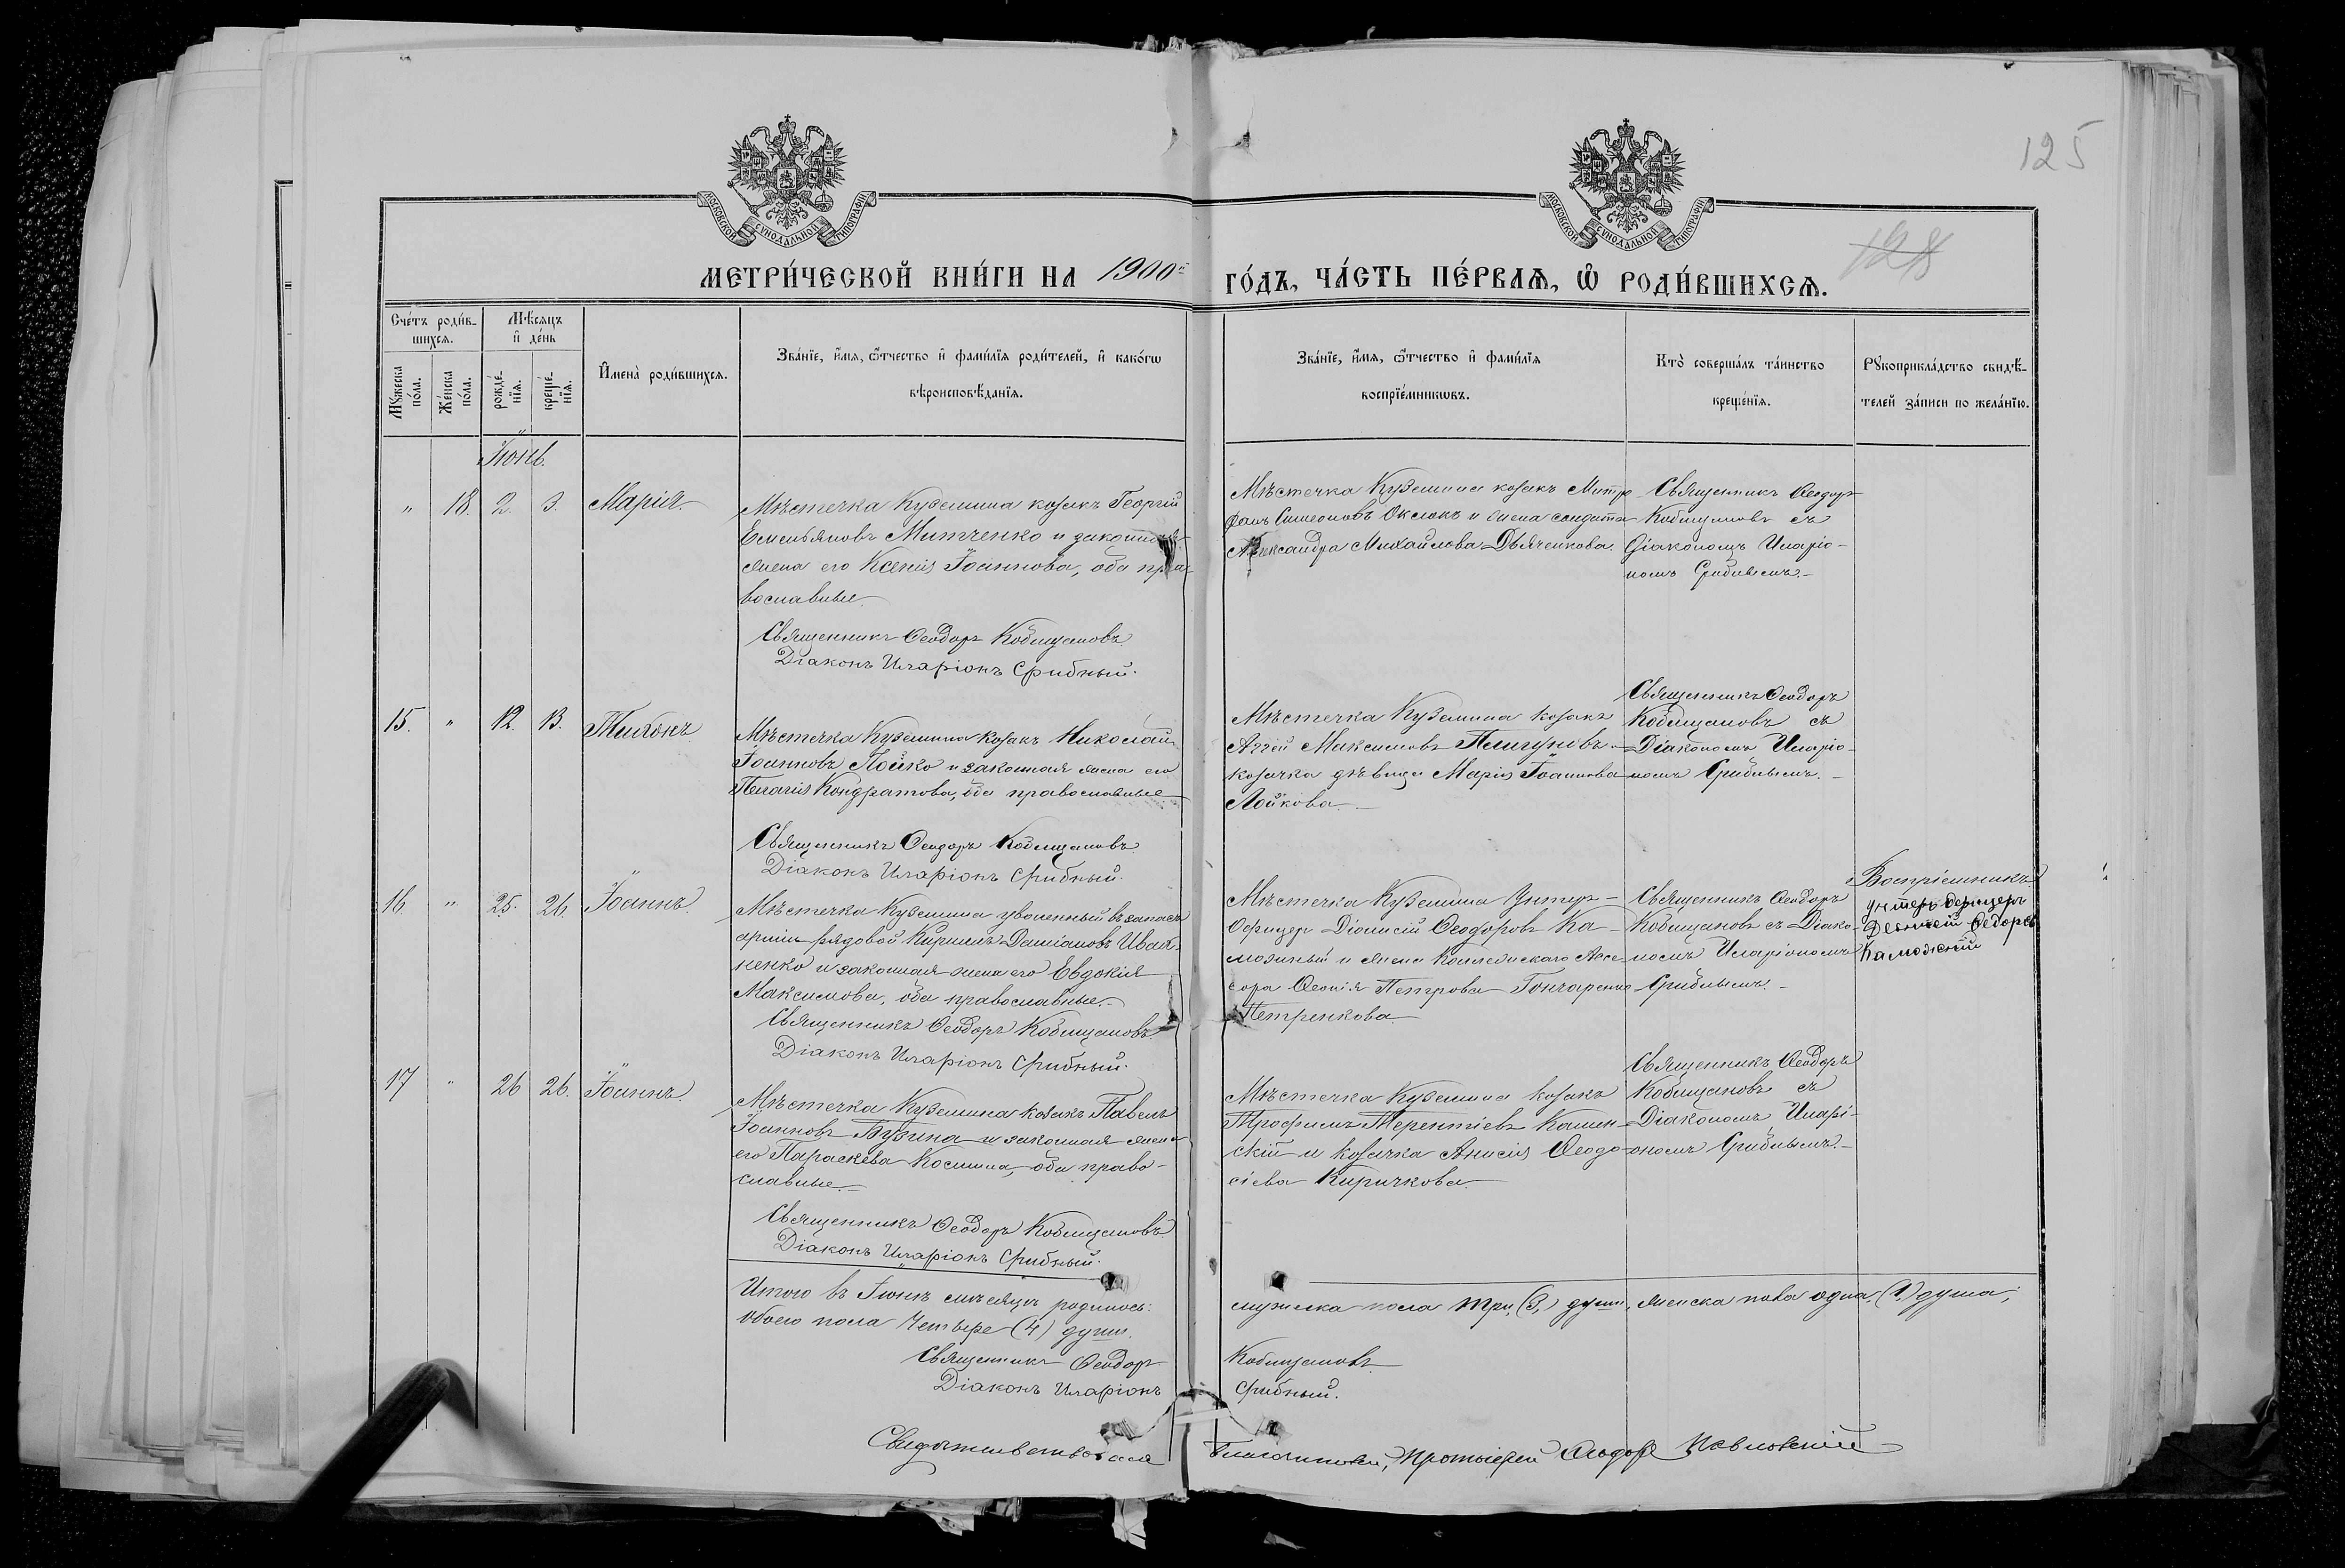 125
128
МОСКОВСКОЙ СУНОДАЛЬНОЙ ТИПОГРАФІИ
МОСКОВСКОЙ СУНОДАЛЬНОЙ ТИПОГРАФІИ
МЕТРИ́ЧЕСКОЙ КНИ́ГИ НА 1900й ГО́ДЪ, ЧА́СТЬ ПЕ́РВАѦ, Ѡ҆ РОДИ́ВШИХСѦ.
Сче́тъ роди́в-
шихсѧ.
Мꙋ́жеска по́ла.
Же́нска по́ла.
Мѣ́сѧцъ
и҆ де́нь
рожде́-нїѧ.
креще́-нїѧ.
И҆мена̀ роди́вшихсѧ.
Зва́нїе, и҆́мѧ, ѻ҆́тчество и҆ фами́лїѧ роди́телей, и҆ како́гѡ
вѣроисповѣ́данїѧ.
Зва́нїе, и҆́мѧ, ѻ҆́тчество и҆ фами́лїѧ
воспрїе́мникѡвъ.
Кто̀ соверша́лъ та́инство
креще́нїѧ.
Рꙋкоприкла́дство свидѣ́-
телей за́писи по жела́нїю.
Іюнь.
" 18. 2. 3. Марія.
Мѣстечка Куземина козакъ Георгій
Емельяновъ Митченко и законная
жена его Ксенія Іоаннова, оба пра-
вославные.
Священникъ Ѳеодоръ Кобищановъ.
Діаконъ Иларіонъ Срибный.
Мѣстечка Куземина козакъ Митро-
фанъ Симеоновъ Оклюкъ и жена солдата
Александра Михайлова Дьяченкова.
Священникъ Ѳеодоръ
Кобищановъ съ
Діакономъ Иларіо-
номъ Срибнымъ.
15. " 12. 13. Тихонъ
Мѣстечка Куземина козакъ Николай
Іоанновъ Лойко и законная жена его
Пелагія Кондратова, оба православные
Священникъ Ѳеодоръ Кобищановъ
Діаконъ Иларіонъ Срибный.
Мѣстечка Куземина козакъ
Аггей Максимовъ Плигуновъ и
козачка дѣвица Марія Іоаннова
Лойкова.
Священникъ Ѳеодоръ
Кобищановъ съ
Діакономъ Иларіо-
номъ Срибнымъ.
16. " 25. 26. Іоаннъ.
Мѣстечка Куземина уволенный въ запасъ
арміи рядовой Кириллъ Даміановъ Ивах-
ненко и законная жена его Евдокія
Максимова, оба православные.
Священникъ Ѳеодоръ Кобищановъ
Діаконъ Иларіонъ Срибный.
Мѣстечка Куземина Унтеръ-
Офицеръ Діонисій Ѳеодоровъ Ка-
и жена Коллежскаго Ассе-
сора Петрова
Петренкова.
Священникъ Ѳеодоръ
Кобищановъ съ Діако-
номъ Иларіономъ
Срибнымъ.
Воспріемникъ
унтеръ офицеръ
Ѳедоровъ
17 " 26 26. Іоаннъ.
Мѣстечка Куземина козакъ Павелъ
Іоанновъ Бузина и законная жена
его Параскева Космина, оба право-
славные.
Священникъ Ѳеодоръ Кобищановъ
Діаконъ Иларіонъ Срибный.
Мѣстечка Куземина козакъ
Трофимъ Терентіевъ Камен-
скій и козачка Анисія Ѳеодо-
сіева Киричкова.
Священникъ Ѳеодоръ
Кобищановъ съ
Діакономъ Иларі-
ономъ Срибнымъ.
Итого въ Іюнѣ мѣсяцѣ родилось: мужеска пола три (3) души, женска пола одна (1) душа;
обоего пола четыре (4) души.
Священникъ Ѳеодоръ Кобищановъ
Діаконъ Иларіонъ Срибный.
Свидѣтельствовалъ Благочинный, Протоіерей Ѳеодоръ Павловскій